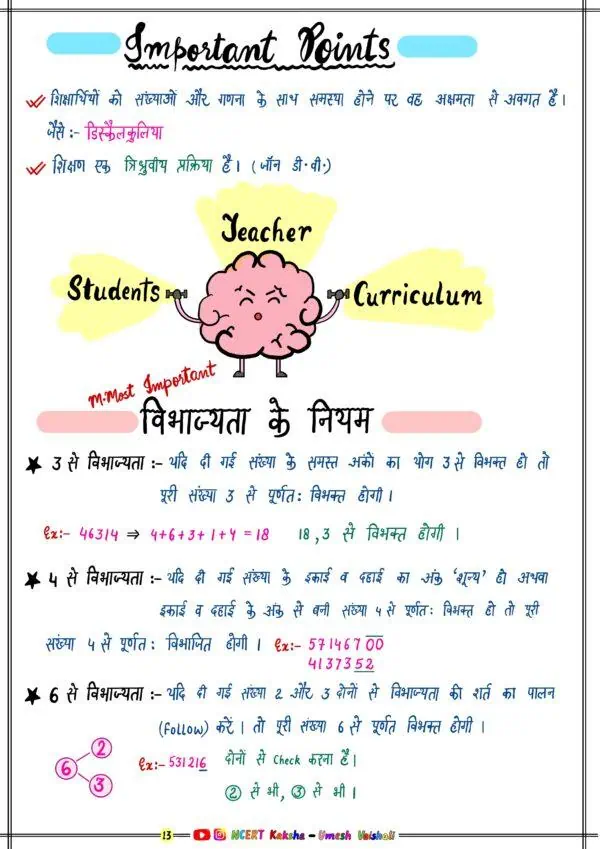 Important Points
शिक्षार्थियों को संख्याओं और गणना के साथ समस्या होने पर वह अक्षमता से अवगत है।
जैसे :- डिस्कैलकुलिया
शिक्षण एक त्रिध्रुवीय प्रक्रिया है। (जॉन डी.वी.)
Teacher
Students
Curriculum
M.Most Important
विभाज्यता के नियम
3 से विभाज्यता :- यदि दी गई संख्या के समस्त अंकों का योग 3 से विभक्त हो तो
पूरी संख्या 3 से पूर्णतः विभक्त होगी।
Ex:- 46314 ⇒ 4+6+3+1+4 = 18 18, 3 से विभक्त होगी।
4 से विभाज्यता :- यदि दी गई संख्या के इकाई व दहाई का अंक 'शून्य' हो अथवा
इकाई व दहाई के अंक से बनी संख्या 4 से पूर्णतः विभक्त हो तो पूरी
संख्या 4 से पूर्णतः विभाजित होगी। Ex:- 57146700
4137352
6 से विभाज्यता :- यदि दी गई संख्या 2 और 3 दोनों से विभाज्यता की शर्त का पालन
(Follow) करें। तो पूरी संख्या 6 से पूर्णत विभक्त होगी।
6 2 3
Ex:- 531216 दोनों से Check करना है।
2 से भी, 3 से भी।
13 NCERT Kaksha - Umesh Vaishali